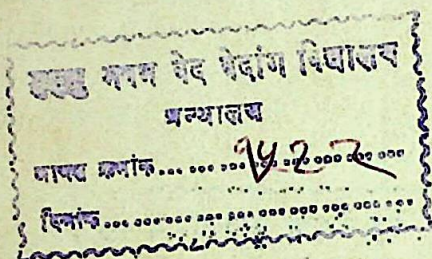 मुमुक्षु भवन वेद वेदांग विद्यालय
ग्रन्थालय
आगत क्रमांक............१५२२............
दिनांक........................................